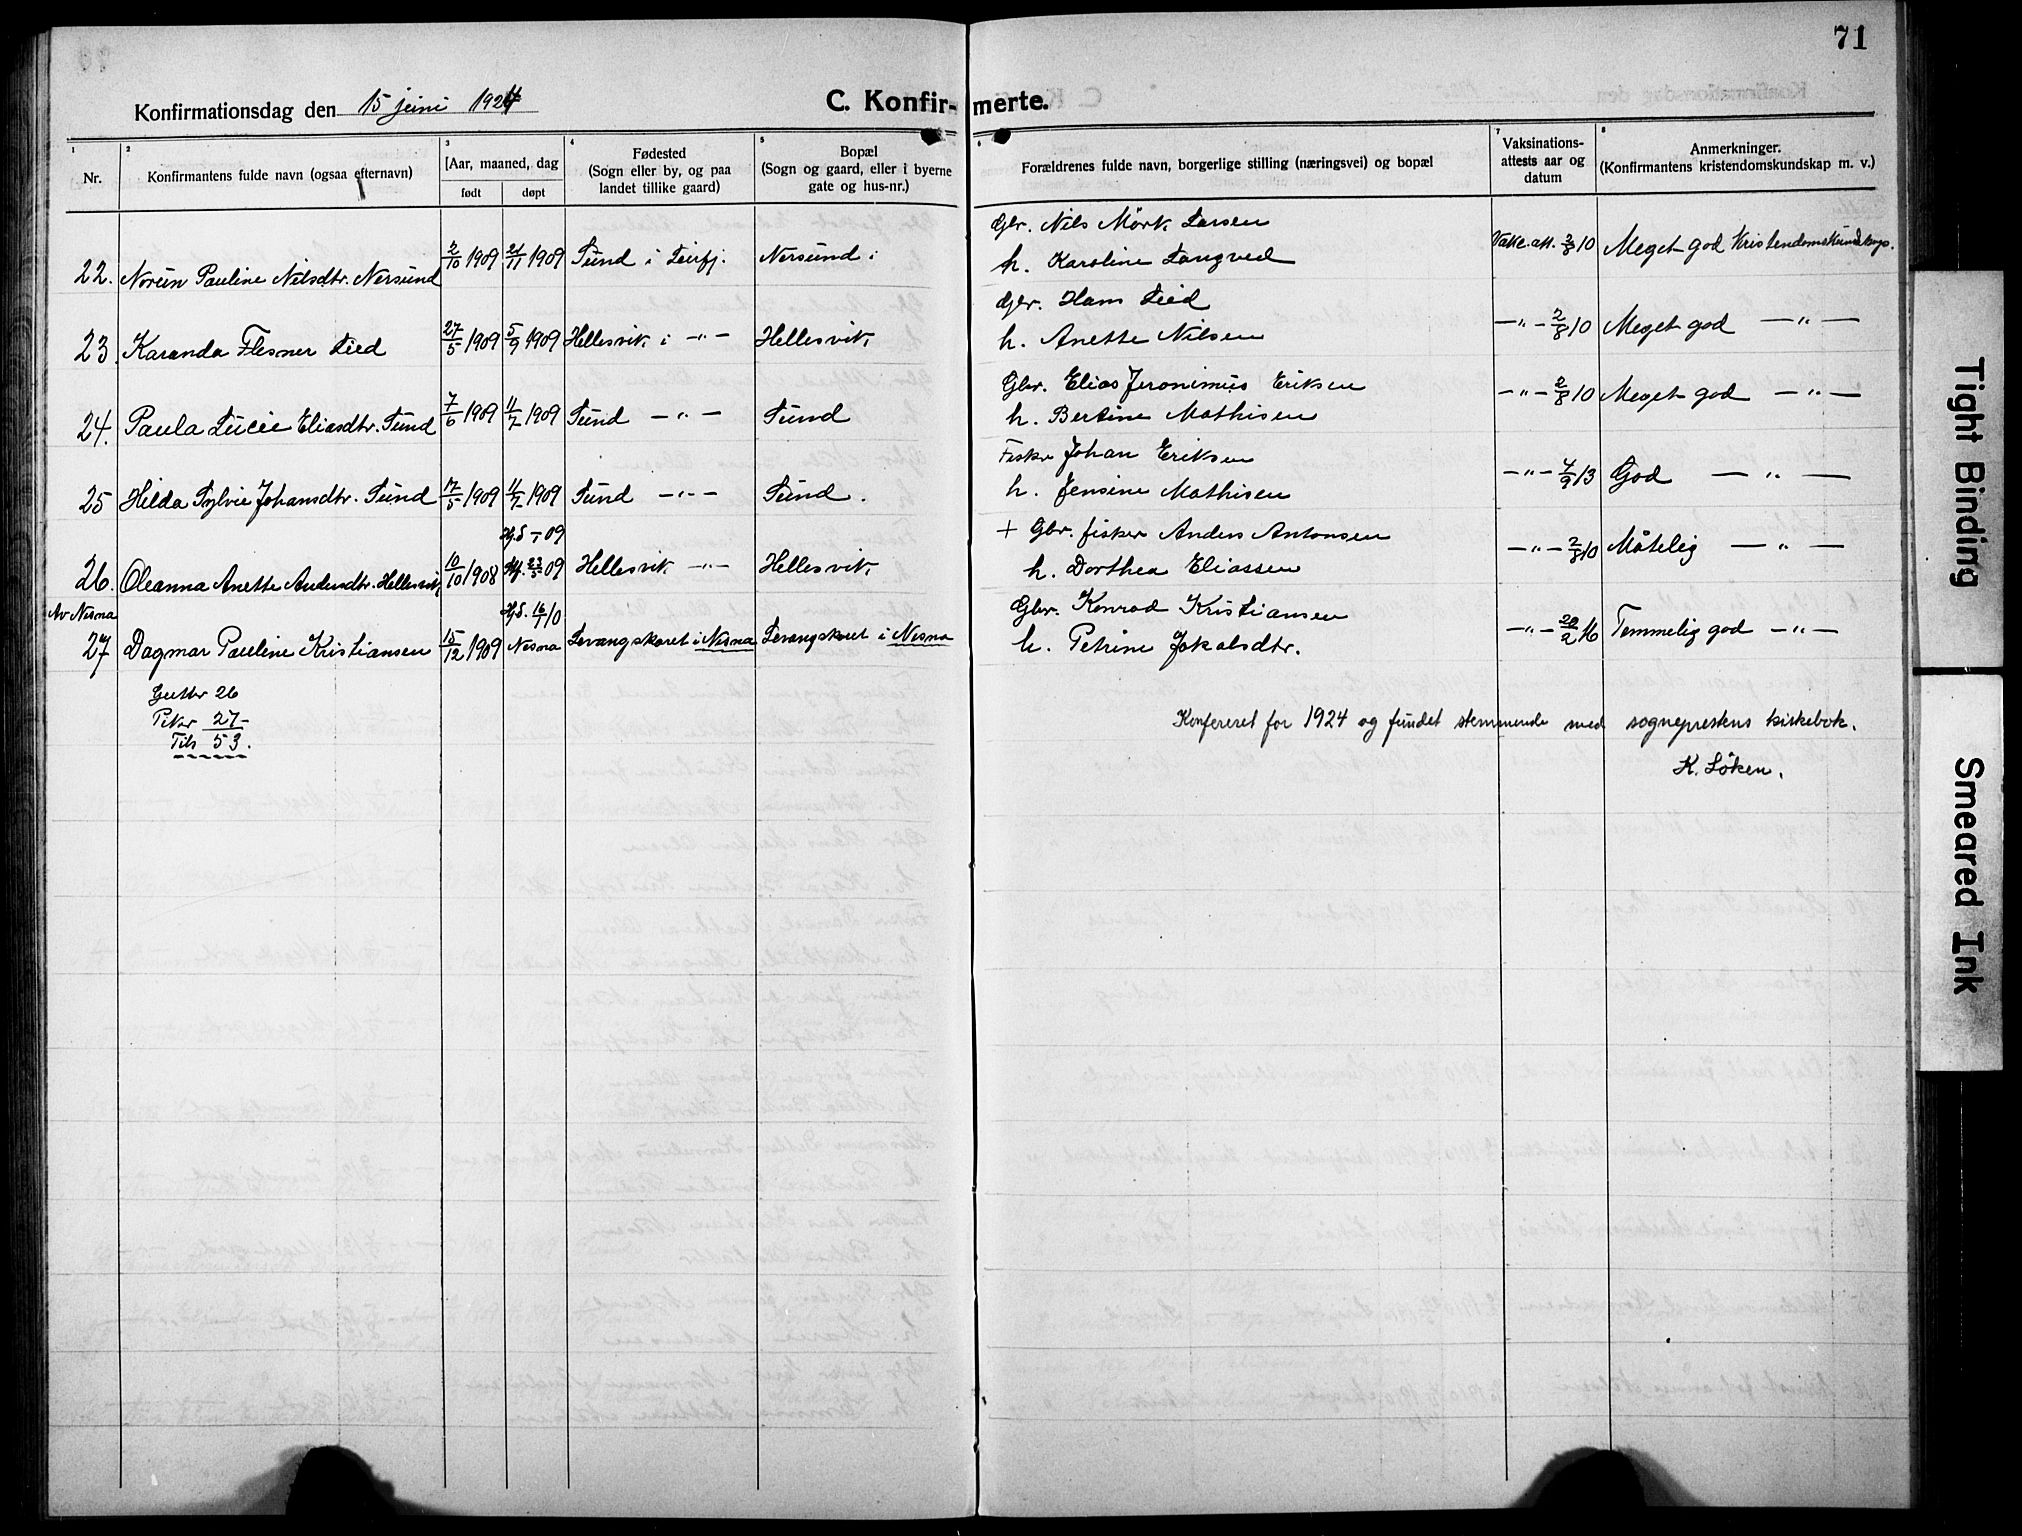 71
Konfirmationsdag den 15 juni 1924
C. Konfir- merte.
1 2 3 4 5 6 7 8
Nr.
Konfirmantens fulde navn (ogsaa efternavn)
[Aar, maaned, dag
født døpt
Fødested
(Sogn eller by, og paa
landet tillike gaard)
Bopæl
(Sogn og gaard, eller i byerne
gate og hus-nr.)
Forældrenes fulde navn, borgerlige stilling (næringsvei) og bopæl
Vaksinations-
attests aar og
datum
Anmerkninger.
(Konfirmantens kristendomskundskap m. v.)
Gbr. Nils Mörk Larsen
22. Norun Pauline Nilsdtr. Nersund 2/10 1909 21/11 1909 Sund i Leirfj. Nersund i h. Karoline Langved Vakc. att. 2/8 10 Meget god Kristendomskundskap.
Gbr. Hans Lied
23. Karanda Flesner Lied 27/5 1909 5/9 1909 Hellesvik i -"- Hellesvik h. Anette Nilsen -"- 2/8 10 Meget god -"-
Gbr. Elias Jeronimus Eriksen
24. Paula Lucie Eliasdtr. Sund 7/6 1909 11/7 1909 Sund -"- Sund h. Bertine Mathisen -"- 2/8 10 Meget god -"-
Fisker Johan Eriksen
25 Hilda Sylvie Johansdtr. Sund 17/5 1909 11/7 1909 Sund -"- Sund. h. Jensine Mathisen -"- 4/9 13 God -"-
+ Gbr. fisker Anders Antonsen
26. Oleanna Anette Andersdtr. Hellesvik 10/10 1908 Hj. 23/5 09 Hellesvik -"- Hellesvik h. Dorthea Eliassen -"- 2/8 10 Måtelig -"-
Av Nesna
Hjd. 16/1 10
Gbr. Konrad Kristiansen
27 Dagmar Pauline Kristiansen 15/12 1909 Nesna Levangskaret i Nesna Levangskaret i Nesna h. Petrine Jakobsdtr. -"- 20/2 16 Temmelig god -"-
Gutter 26
Piker 27-
Tils 53.
Konfereret for 1924 og fundet stemmende med sogneprestens kirkebok.
K. Löken.
Tight Binding
Smeared Ink